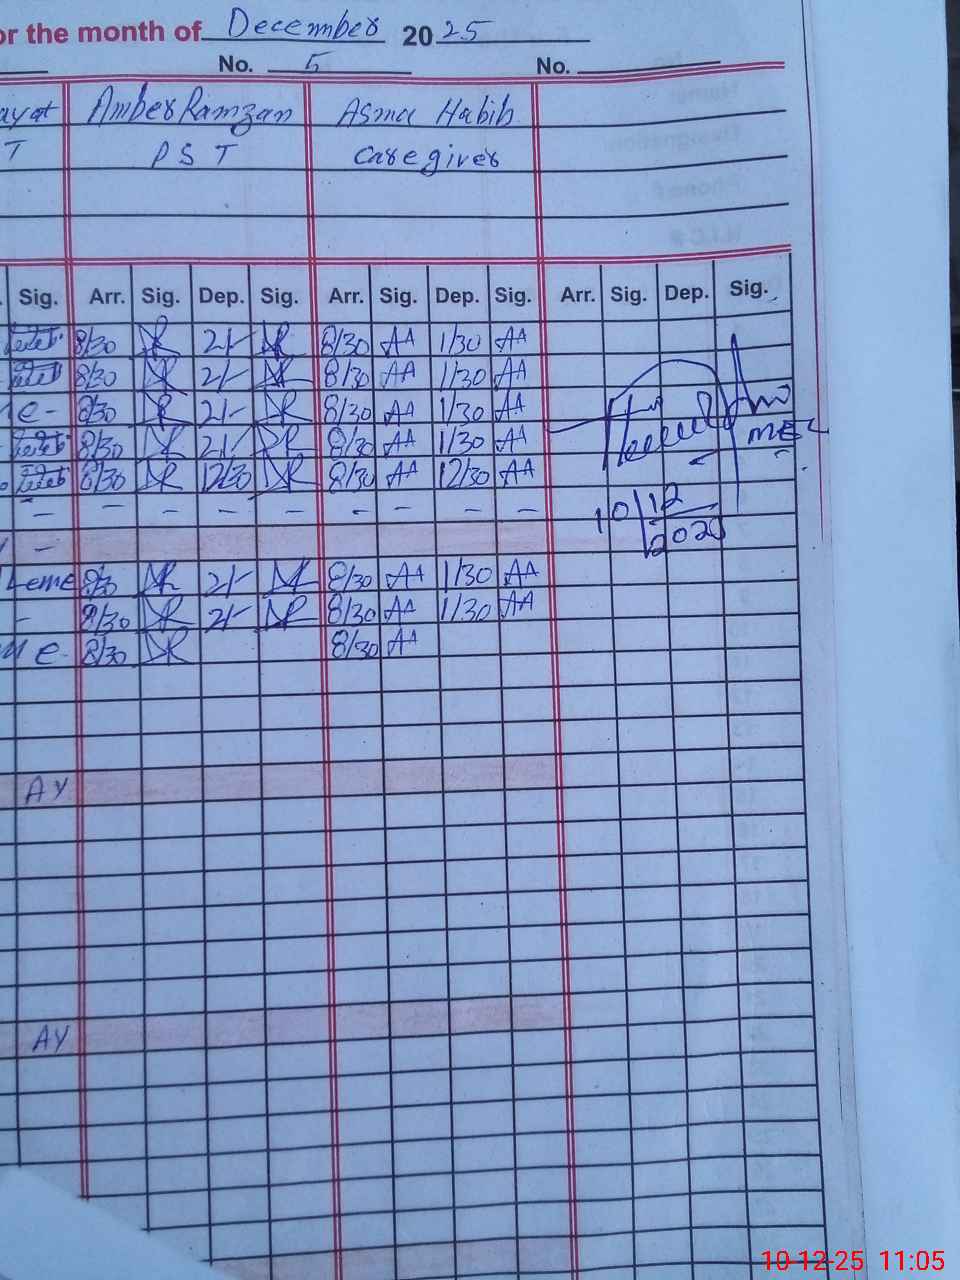 or the month of December 2025
No. 5 No.
ayat Amber Ramzan Asma Habib
T P S T Caregiver
Sig. Arr. Sig. Dep. Sig. Arr. Sig. Dep. Sig. Arr. Sig. Dep. Sig.
8/30 2/- 8/30 AA 1/30 AA
8/30 2/- 8/30 AA 1/30 AA
e- 8/30 2/- 8/30 AA 1/30 AA
8/30 2/- 8/30 AA 1/30 AA
8/30 12/30 8/30 AA 12/30 AA
- - - - - - - - -
-
8/30 2/- 8/30 AA 1/30 AA
- 8/30 2/- 8/30 AA 1/30 AA
e- 8/30 8/30 AA
10/12
2025
AY
AY
10-12-25 11:05